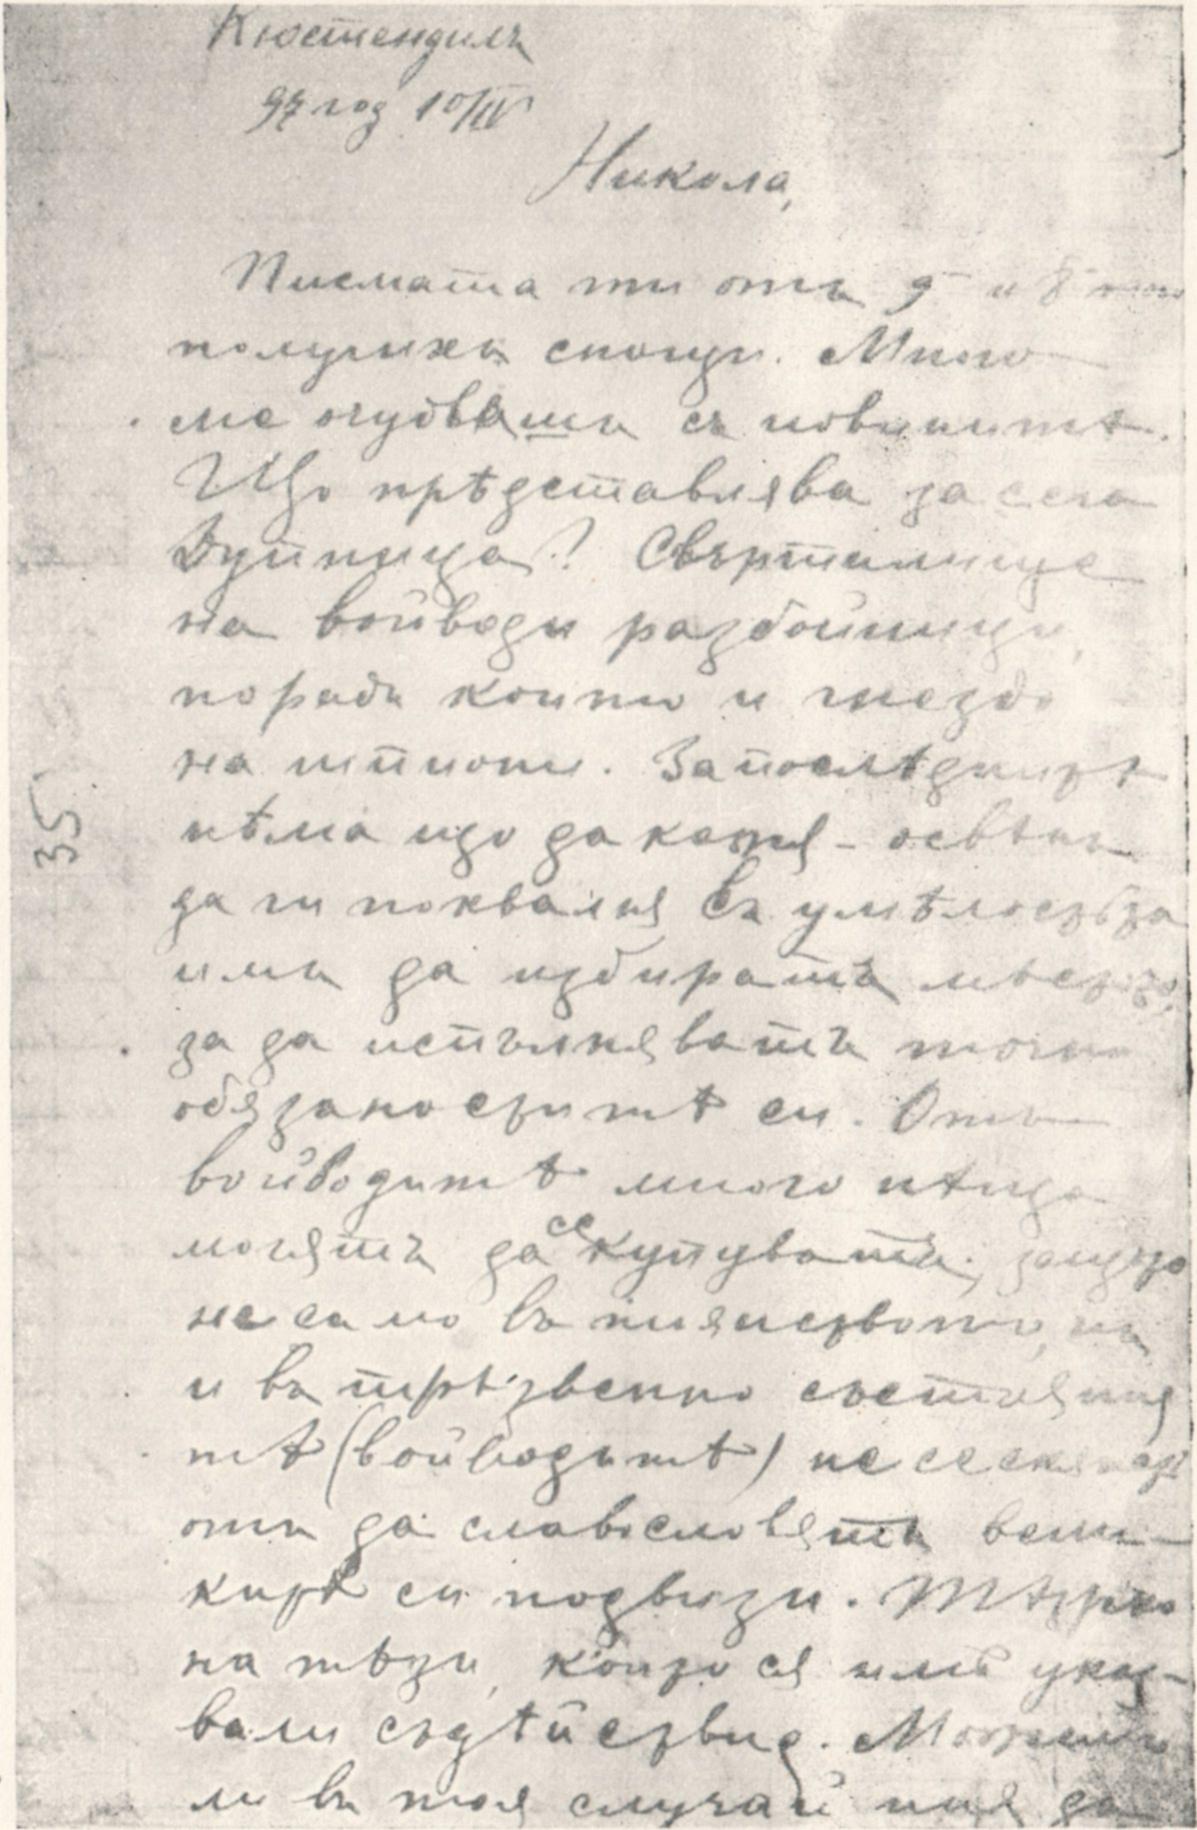 Кюстендилъ
97 год 10/IV
Никола,
Писмата ти отъ 9 и 8 того
получихъ снощи. Много
ме очудвашъ съ новинитѣ.
Що прѣдставлява за сега
Дупница? Свъртилище
на войводи разбойници,
поради които и гнездо
на шпиони. За послѣднитѣ
нѣма що да кажя - освѣнъ
да ги похваля въ умѣлостьта
имъ да избиратъ место,
за да испълняватъ точно
обязаноститѣ си. Отъ
войводитѣ много нѣща
могятъ да се купуватъ, защото
не само въ пиянството, но
и въ трѣзвенно състояния
тѣ (войводитѣ) не се
отъ да славословятъ вели-
китѣ си подвизи.
на тѣзи, които ся имъ указ-
вали съдѣйствие. Можемъ
ли въ тоя случай ния да
35